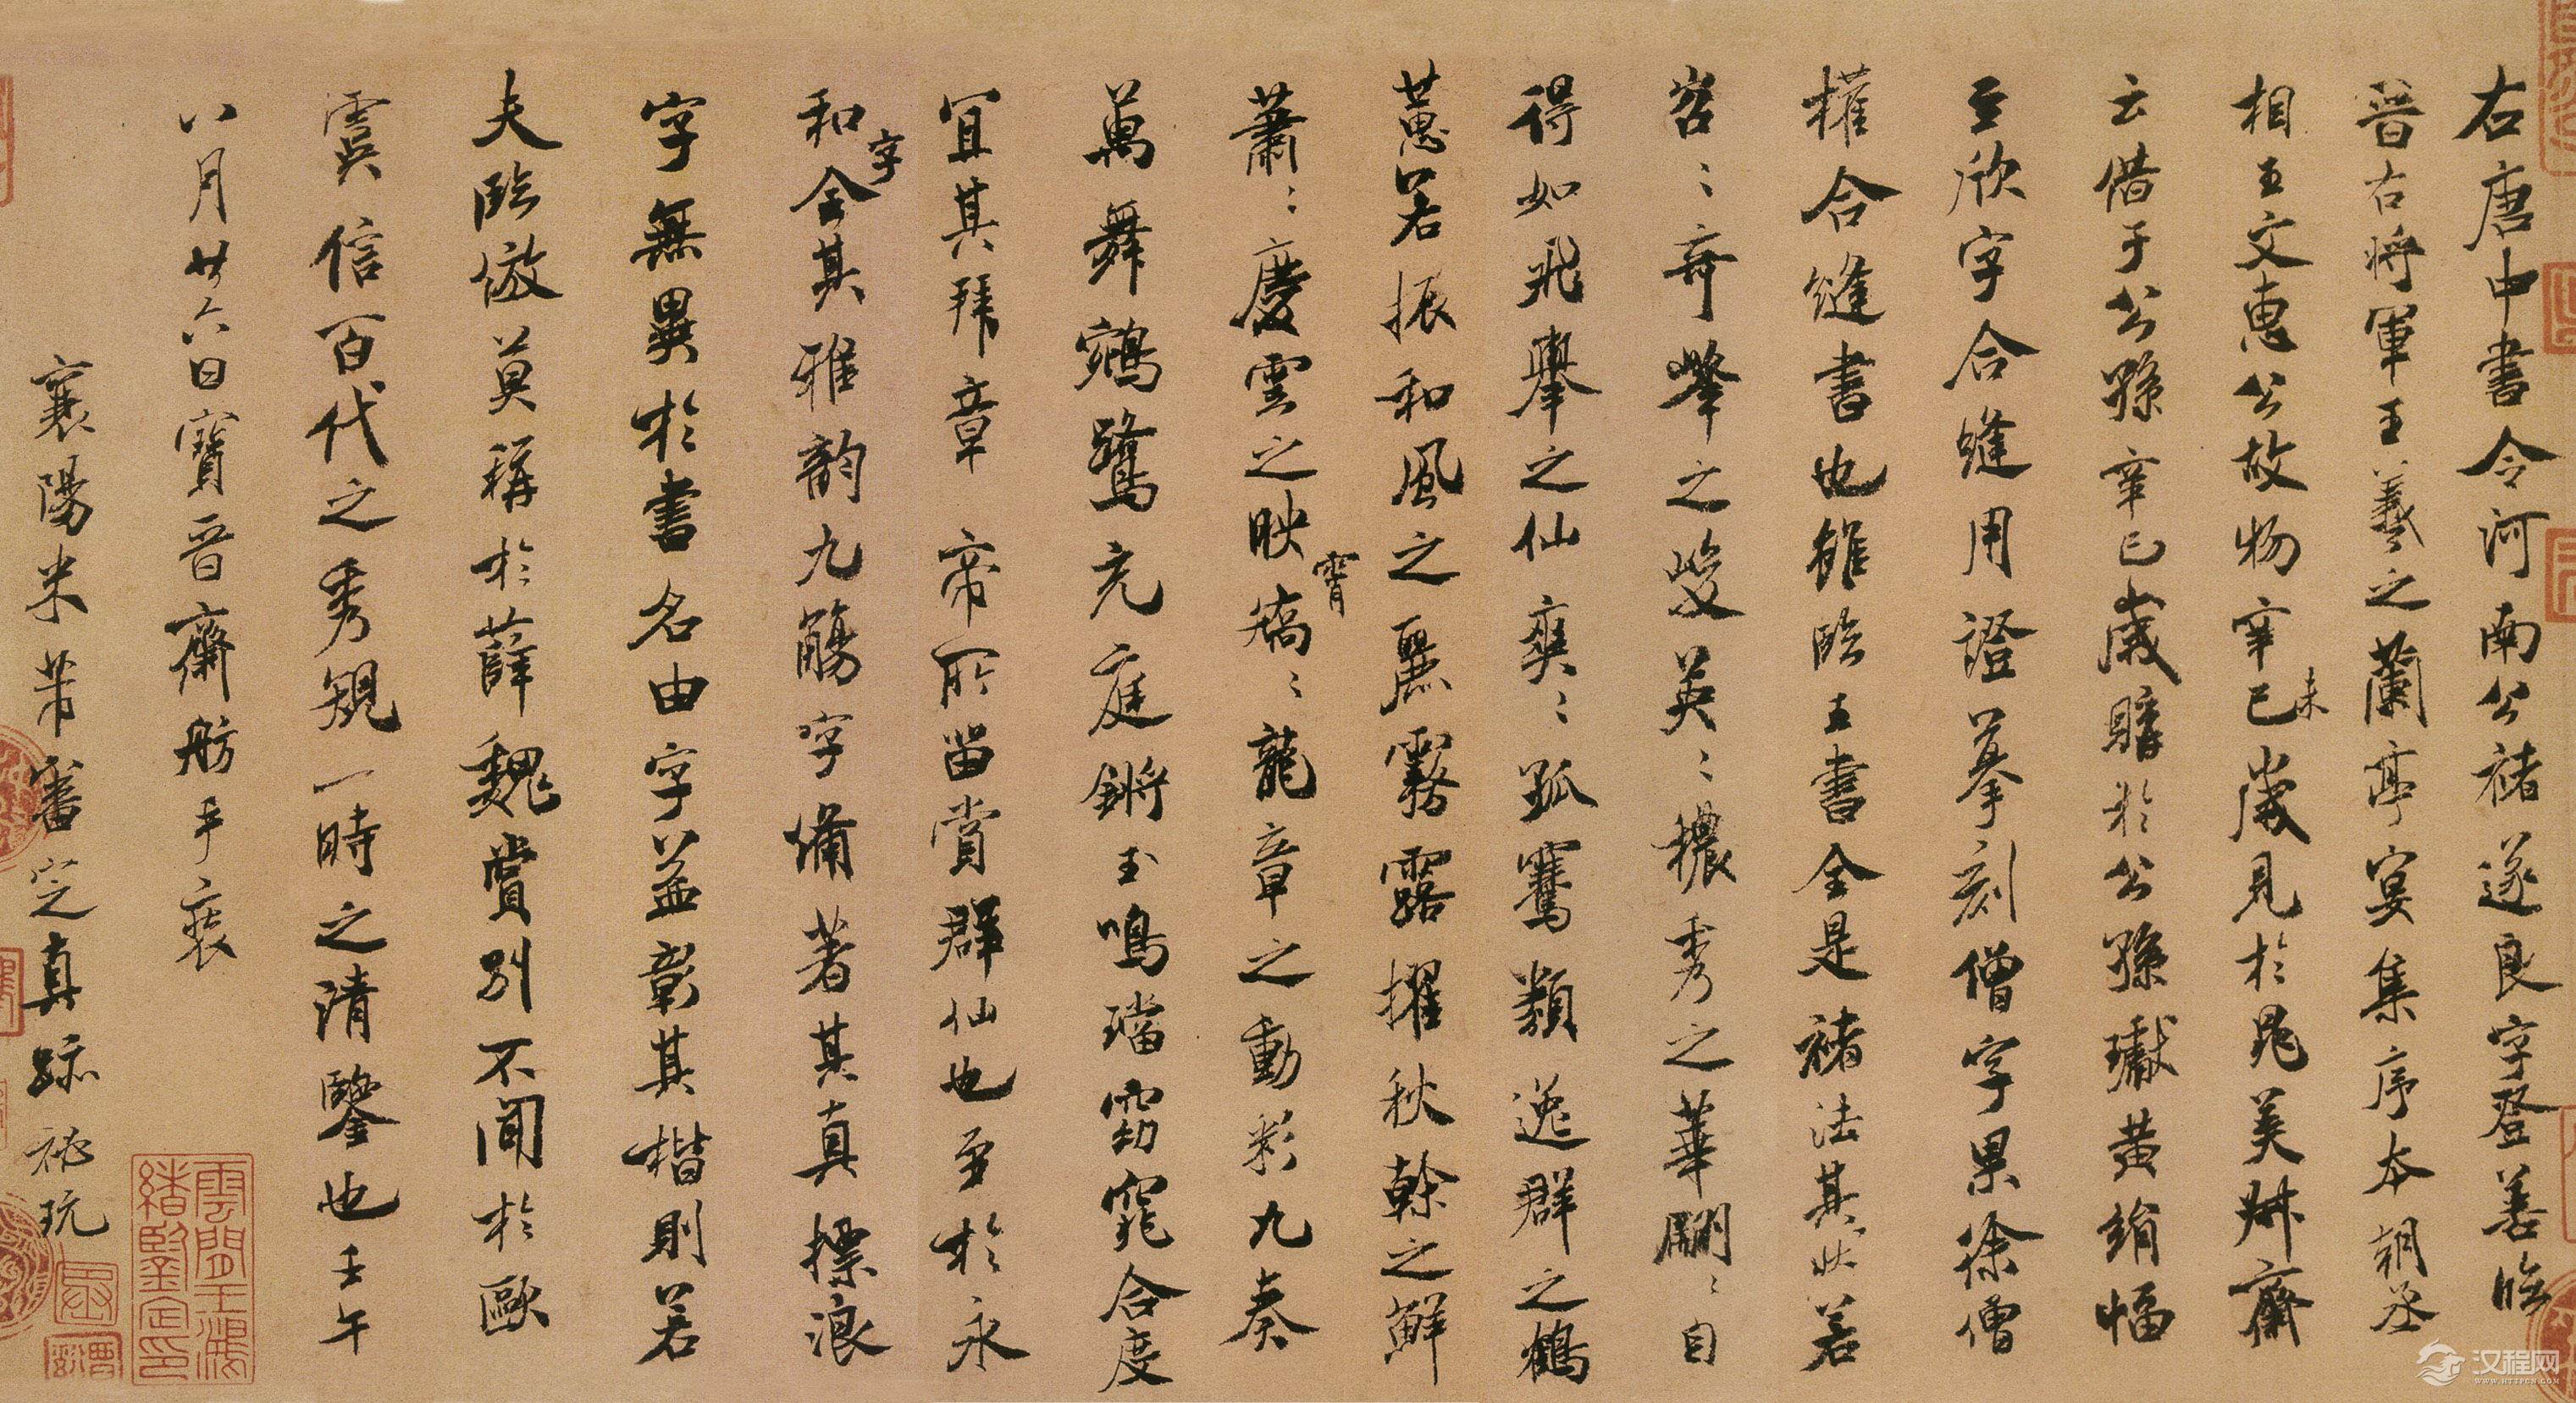 右唐中書令河南公褚遂良字登善臨
晉右將軍王羲之蘭亭宴集序本朝丞
相王文惠公故物辛未巳歲見於晁美叔齋
云借于公孫辛巳歲購於公孫瓛黃絹幅
至欣字合縫用證摹刻僧字果徐僧
權合縫書也雖臨王書全是褚法其狀若
岩〻奇峯之峻英〻穠秀之華翩〻自
得如飛舉之仙爽〻孤騫類逸群之鶴
蕙若振和風之麗霧露擢秋幹之鮮
蕭〻慶雲之映霄矯〻龍章之動彩九奏
萬舞鵷鷺充庭鏘玉鳴璫窈窕合度
宜其拜章帝所留賞群仙也至於永
和字全其雅韵九觴字備著其真標浪
字無異於書名由字益彰其楷則若
夫臨倣莫稱於薛魏賞別不聞於歐
虞信百代之秀規一時之清鑒也壬午
八月廿六日寶晉齋舫手裝
襄陽米芾審定真跡祕玩
雲間王鴻緒鑒定印
汉程网
WWW.HTTPCN.COM